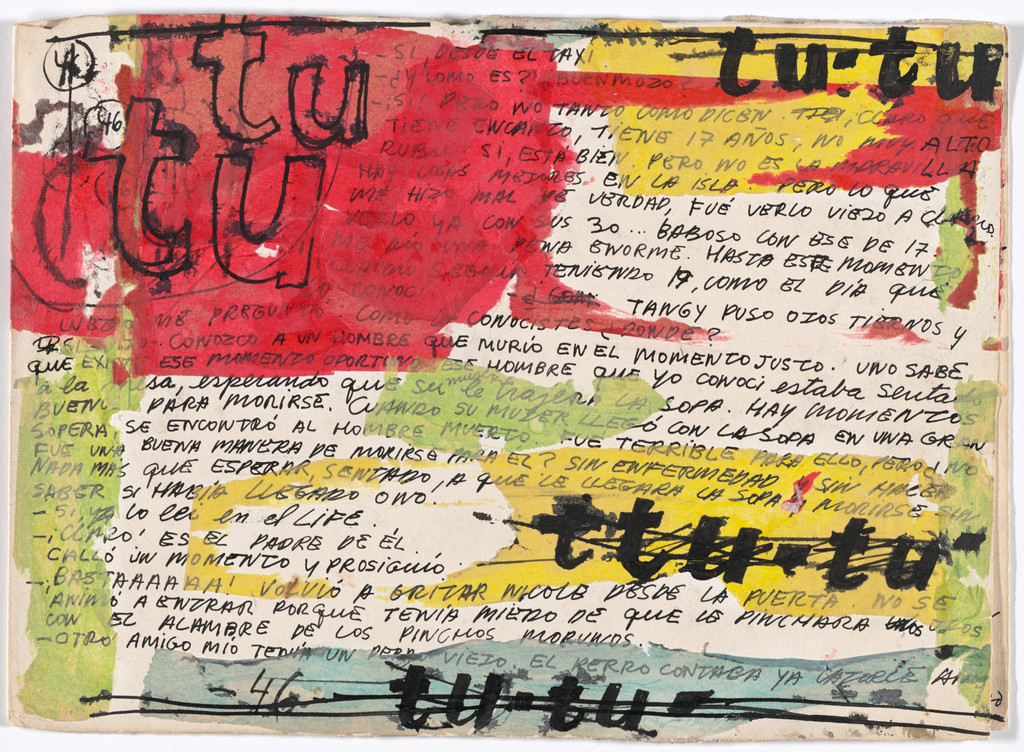 44
46
tu
tu
tu-tu
- SI, DESDE EL TAXI
- ¿Y COMO ES? ¿BUENMOZO?
- ¡SI! PERO NO TANTO COMO DICEN, CLARO QUE
TIENE ENCANTO, TIENE 17 AÑOS, NO MUY ALTO
RUBIO. SI, ESTA BIEN, PERO NO ES LA MARAVILLA
HAY MEJORES EN LA ISLA. PERO LO QUE
ME HIZO MAL DE VERDAD, FUÉ VERLO VIEJO A
VERLO YA CON SUS 30... BABOSO CON ESE DE 17.
ME DIO UNA PENA ENORME. HASTA ESTE MOMENTO
CLAUDIO SEGUIA TENIENDO 19, COMO EL DIA QUE
CONOCI.
TANGY PUSO OJOS TIERNOS Y
LUEGO ME PREGUNTÓ COMO CONOCISTES ¿DONDE?
CONOZCO A UN HOMBRE QUE MURIO EN EL MOMENTO JUSTO. UNO SABE
QUE EXISTE ESE MOMENTO OPORTUNO. ESE HOMBRE QUE YO CONOCI estaba sentado
a la mesa, esperando que su mujer le trajera LA SOPA. HAY MOMENTOS
BUENOS PARA MORIRSE. CUANDO SU MUJER LLEGÓ CON LA SOPA EN UNA GRAN
SOPERA, SE ENCONTRÓ AL HOMBRE MUERTO. FUE TERRIBLE PARA ELLO, PERO ¿NO
FUE UNA BUENA MANERA DE MORIRSE PARA EL? SIN ENFERMEDAD, SIN HACER
NADA MAS QUE ESPERAR, SENTADO, A QUE LE LLEGARA LA SOPA Y MORIRSE SIN
SABER SI HABÍA LLEGADO O NO.
- SI, YA lo leí en el LIFE.
- ¡CLARO! ES EL PADRE DE ÉL...
CALLÓ UN MOMENTO Y PROSIGUIÓ.
ttu-tu-
- ¡BASTAAAAAA! VOLVIO A GRITAR NICOLE DESDE LA PUERTA. NO SE
ANIMÓ A ENTRAR PORQUE TENÍA MIEDO DE QUE LE PINCHARA LOS OJOS
CON EL ALAMBRE DE LOS PINCHOS MORUNOS.
- OTRO AMIGO MIO TENÍA UN PERRO VIEJO. EL PERRO CONTABA YA CATORCE AÑOS
- 46 -
tu-tu-